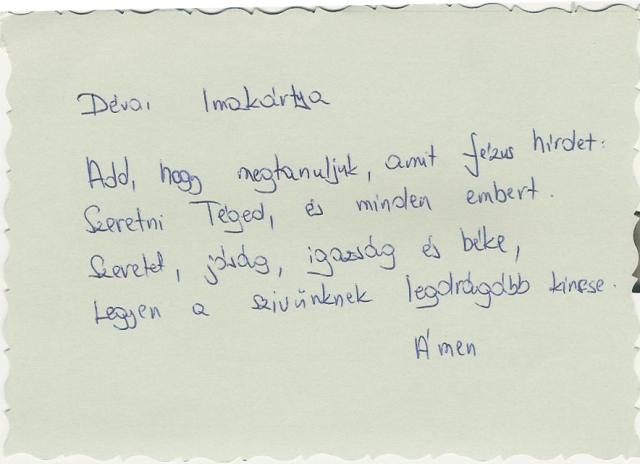 Dévai Imakártya
Add, hogy megtanuljuk, amit Jézus hirdet:
Szeretni Téged, és minden embert.
Szeretet, jóság, igazság és béke,
Legyen a szivünknek legdrágább kincse.
Ámen